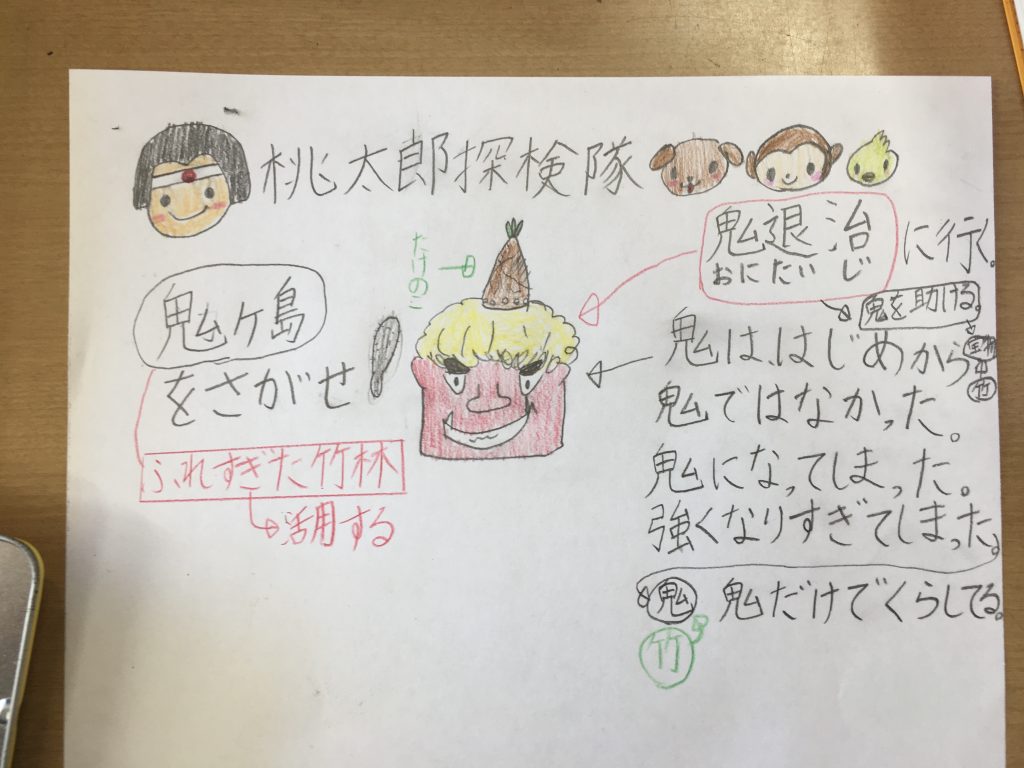 桃太郎探検隊
鬼退治に行く。
おにたいじ
鬼を助ける
たけのこ
鬼ヶ島
をさがせ!
ふれすぎた竹林
活用する
鬼ははじめから
鬼ではなかった。
鬼になってしまった。
強くなりすぎてしまった。
鬼 鬼だけでくらしてる。
竹